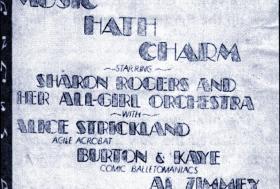 MUSIC
HATH
CHARM
~STARRING~
SHARON ROGERS AND
HER ALL-GIRL ORCHESTRA
~WITH~
ALICE STRICKLAND
AGILE ACROBAT
BURTON & KAYE
COMIC BALLETOMANIACS
AL ZIMMEY